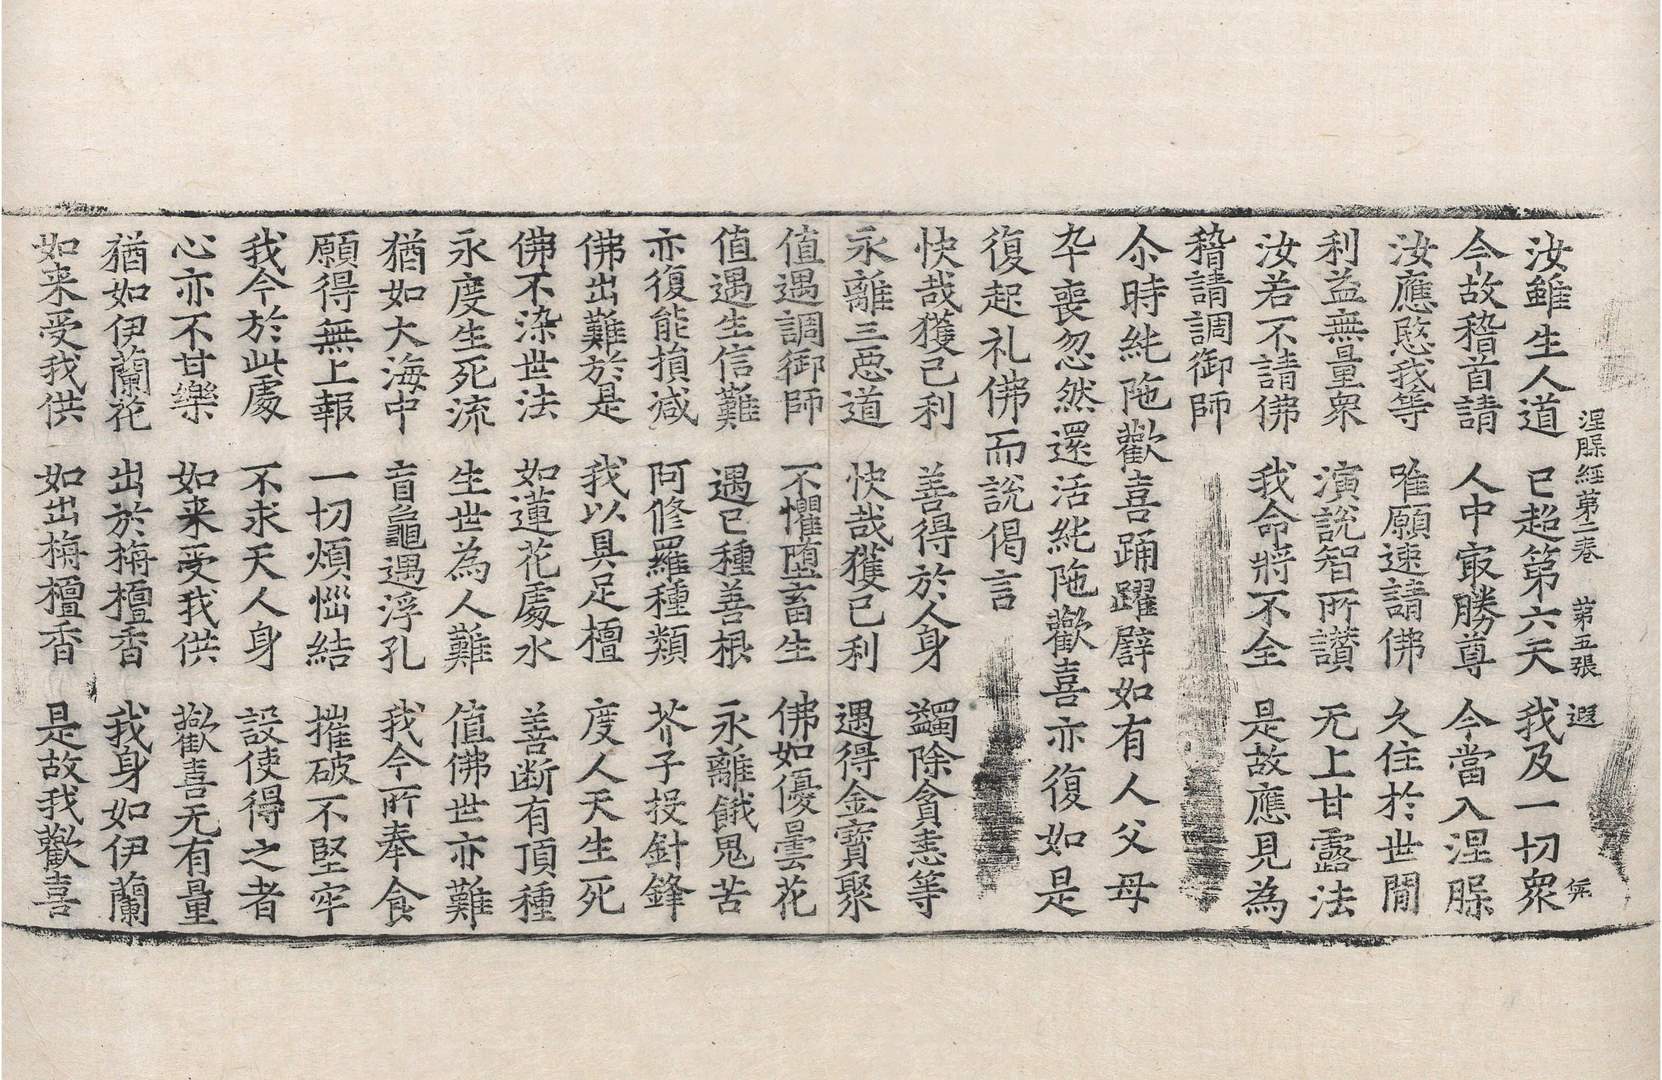 涅槃經第二卷 第五張 遐
汝雖生人道 已超第六天 我及一切衆
今故稽首請 人中㝡勝尊 今當入涅槃
汝應愍我等 唯願速請佛 久住於世閒
利益無量衆 演說智所讃 无上甘露法
汝若不請佛 我命將不全 是故應見為
稽請調御師
尒時純陁歡喜踊躍譬如有人父母
卒喪忽然還活純陁歡喜亦復如是
復起礼佛而說偈言
快哉獲己利 善得於人身 蠲除貪恚等
永離三惡道 快哉獲己利 遇得金寶聚
值遇調御師 不懼墮畜生 佛如優曇花
值遇生信難 遇已種善根 永離餓鬼苦
亦復能損减 阿修羅種類 芥子投針鋒
佛出難於是 我以具足檀 度人天生死
佛不染世法 如蓮花處水 善断有頂種
永度生死流 生世為人難 值佛世亦難
猶如大海中 盲龜遇浮孔 我今所奉食
願得無上報 一切煩惱結 摧破不堅牢
我今於此處 不求天人身 設使得之者
心亦不甘樂 如来受我供 歡喜无有量
猶如伊蘭花 出於栴檀香 我身如伊蘭
如来受我供 如出栴檀香 是故我歡喜